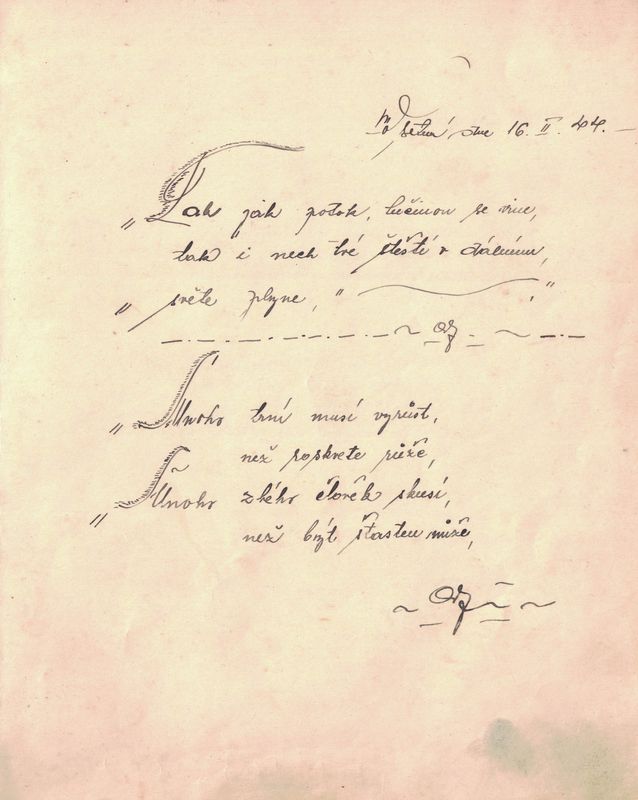 Vsetín dne 16. II. 44.
„Tak jak potok, lučinou se vine,
tak i nech tvé štěstí v dálném,
„ světe plyne,"
„Mnoho trní musí vyrůst,
než roskvete růže,
„Mnoho zlého člověk skusí,
než být štasten může,